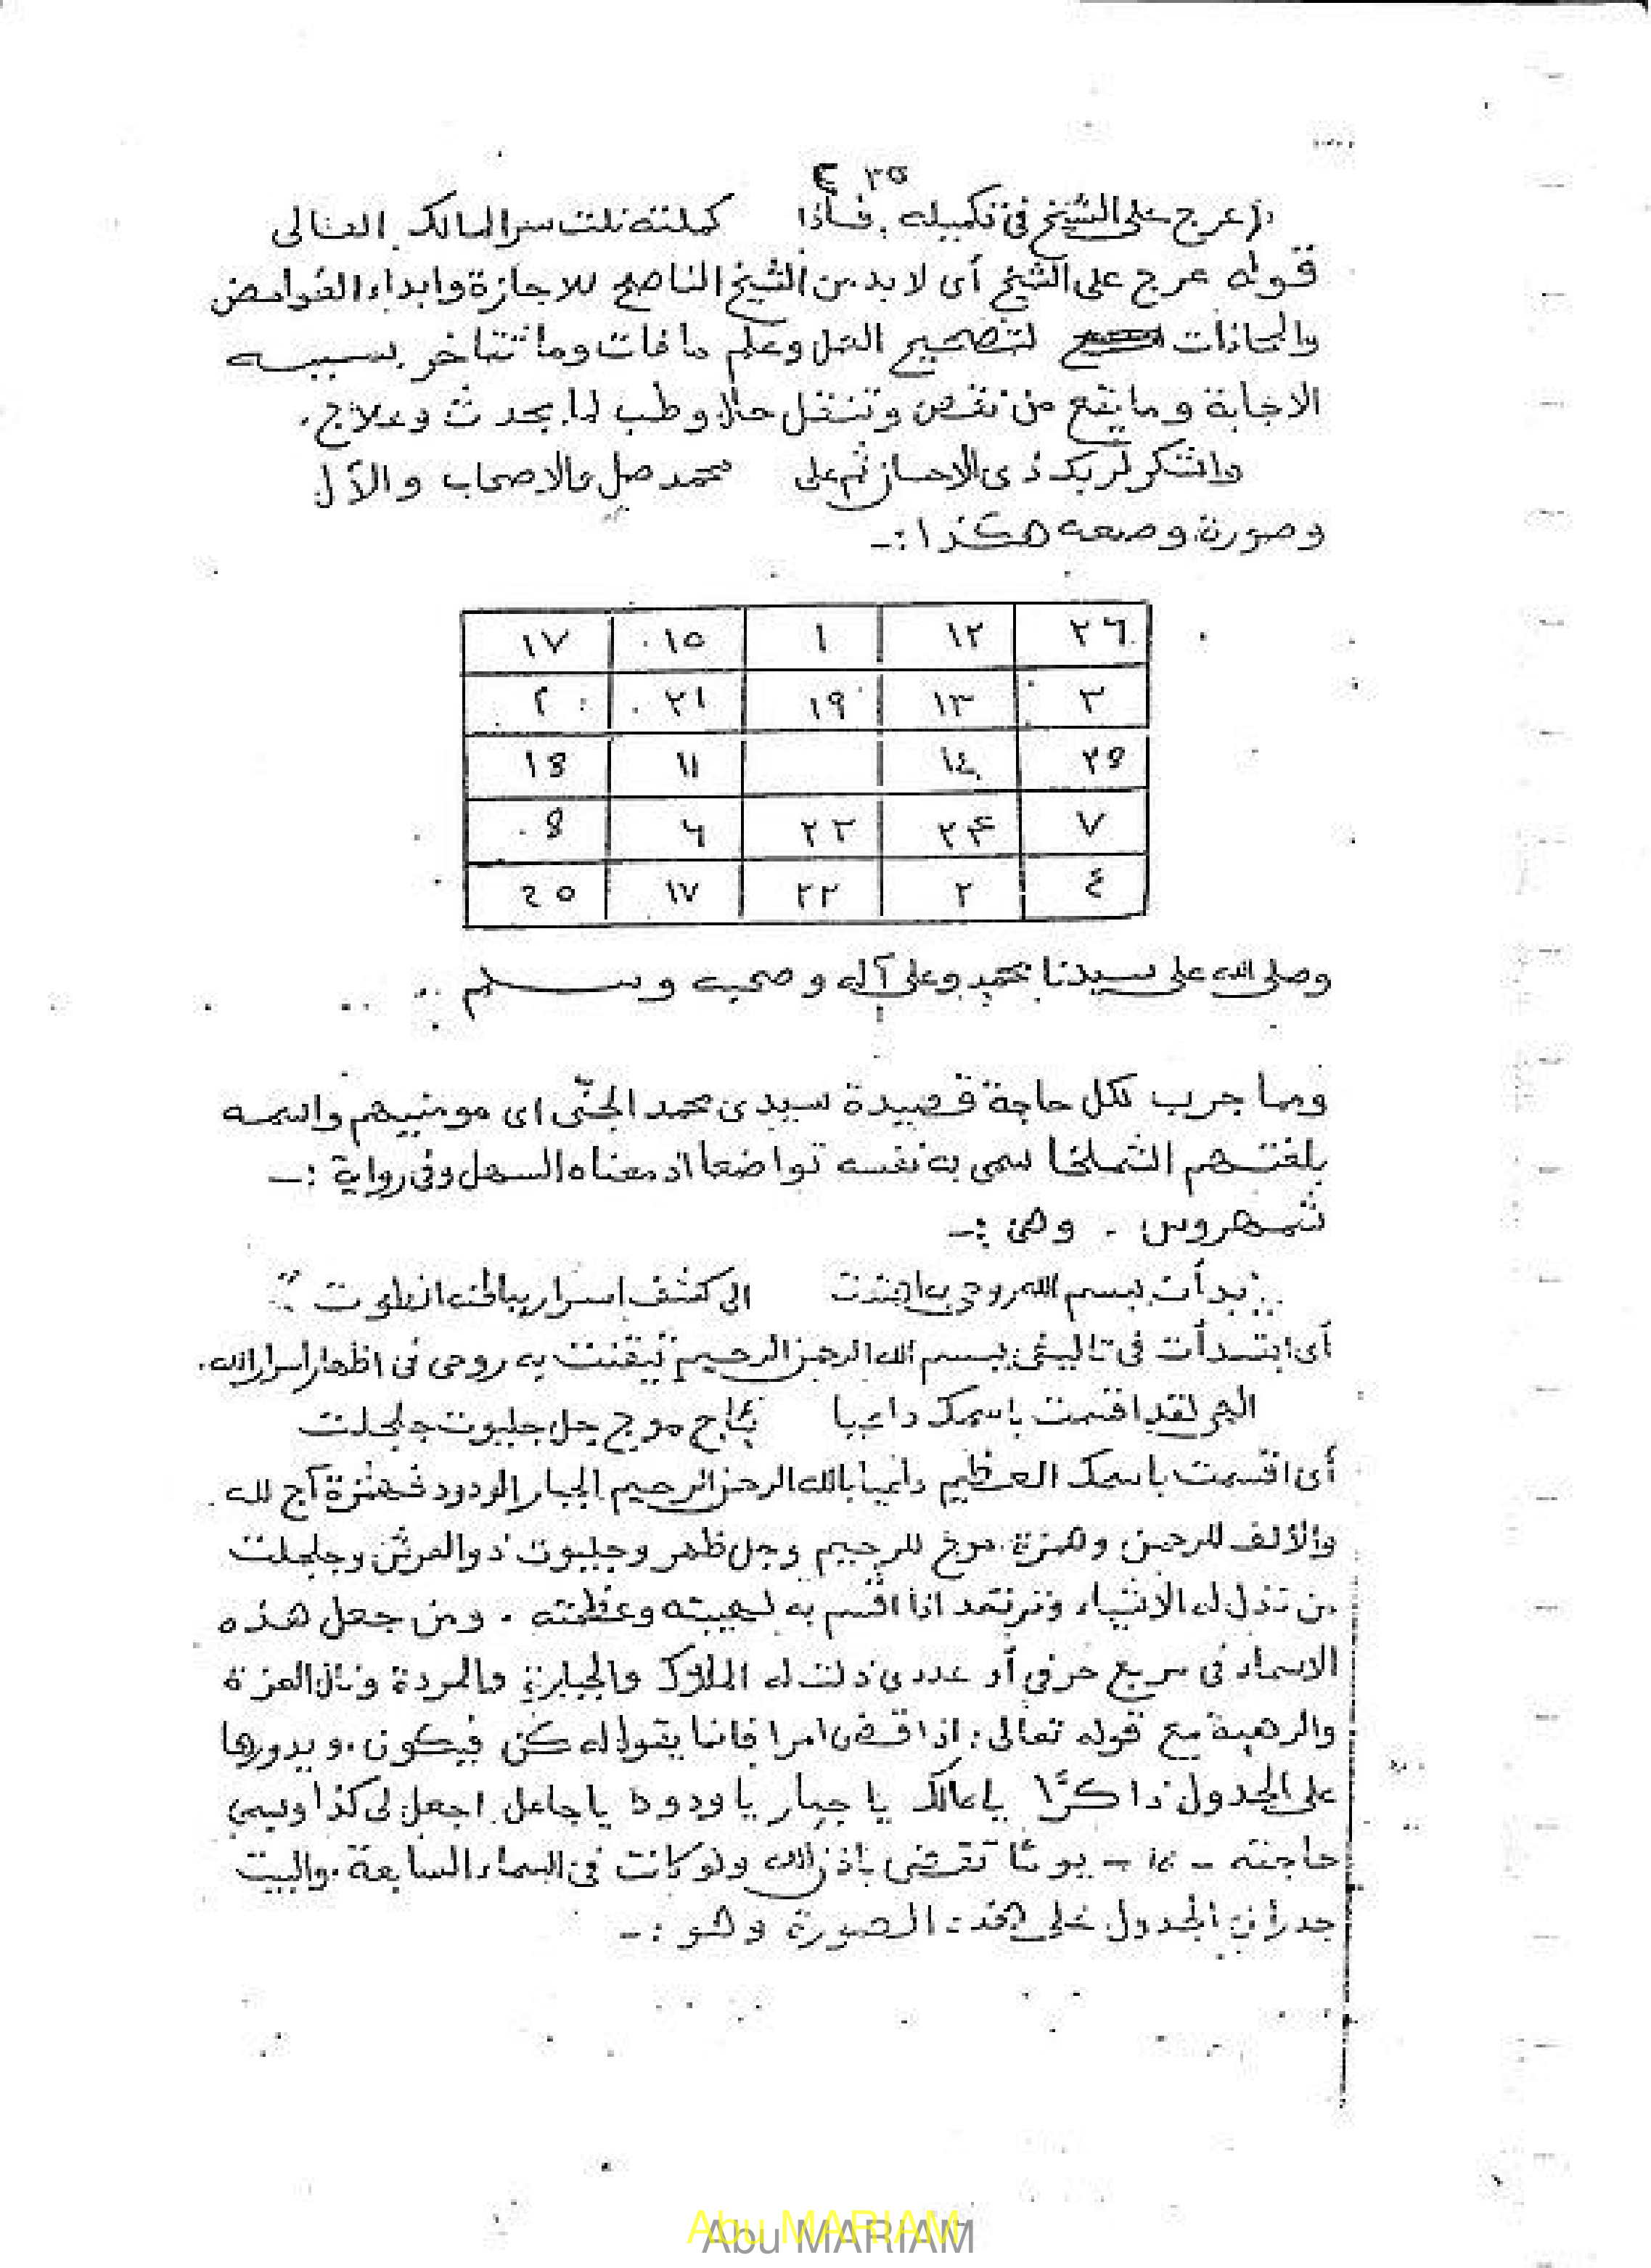 ٢٥ ع
عرج على الشيخ في تكميله فإذا كملته نلت سر المالك العالى
قوله عرج على الشيخ أى لا بد من الشيخ الناصح للاجازة وابداء الغوامض
لتصحيح العمل وعلم ما فات وما تتاخر بسببه
الاجابة وما يقع من نقص وتنقل حال وطب لما يحدث وعلاج.
واشكر لربك ذى الاحسان ثم على محمد صل والاصحاب والآل
وصورة وضعه هكذا :-
٢٦ ١٢ ١ ١٥ ١٧
٣ ١٣ ١٩ ٢١
١٤ ١١
٧ ٢٣ ٦
٤ ٢ ٢٢ ١٧
وصلى الله على سيدنا محمد وعلى آله وصحبه وسلم
ومما جرب لكل حاجة قصيدة سيدى محمد الجنّى اى مومنيهم واسمه
بلغتهم الشملخا سمى به نفسه تواضعا اذ معناه السهل وفى رواية :-
شمهروس . وهى :-
بدأت ببسم الله روحى به اهتدت الى كشف اسرار بباطنه انطوت
أى ابتدأت فى تاليفى ببسم الله الرحمن الرحيم تيقنت به روحى فى اظهار أسرار الله.
لقد اقسمت باسمك داعيا بآج موج جل جلبوت جلجلت
أى اقسمت باسمك العظيم داعيا بالله الرحمن الرحيم الجبار الودود فهمزة آج لله
والألف للرحمن وهمزة موج للرحيم وجل ظهر وجلبوت ذو العرش وجلجلت
من تذلل له الاشياء وترتعد اذا اقسم به لهيبته وعظمته . ومن جعل هذه
الاسماء فى مربع حرفي أو عددى ذلت له الملوك والجبابرة والمردة ونال العزة
والرهبة مع قوله تعالى: اذا قضى امرا فانما يقول له كن فيكون. ويدورها
على الجدول ذاكرًا يا مالك يا جبار يا ودود يا جاعل اجعل لى كذا ويسمى
حاجته - ١٥ - يومًا تقضى باذن الله ولو كانت فى السماء السابعة. والبيت
الجدول على هذه الصورة وهو :-
Abu MARIAM
Abu MARIAM